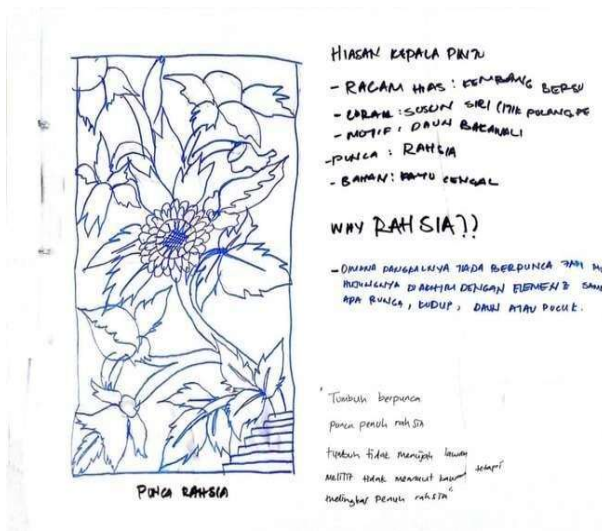 HIASAN KEPALA PINTU
- RAGAM HIAS : KEMBANG BERSU
- CORAK : SUSUN SIRI (ITIK PULANG PE
- MOTIF : DAUN BAKAWALI
- PUNCA : RAHSIA
- BAHAN : KAYU CENGAL
WHY RAHSIA??
- DIMANA PANGKALNYA TIADA BERPUNCA
HUJUNGNYA DIAKHIRI DENGAN ELEMENT SAMA
APA BUNGA, KUDUP, DAUN ATAU PUCUK.
"Tumbuh berpunca
punca penuh rahsia
tumbuh tidak menujah lawan
melilit tidak memaut kawan tetapi
melingkar penuh rahsia"
PUNCA RAHSIA